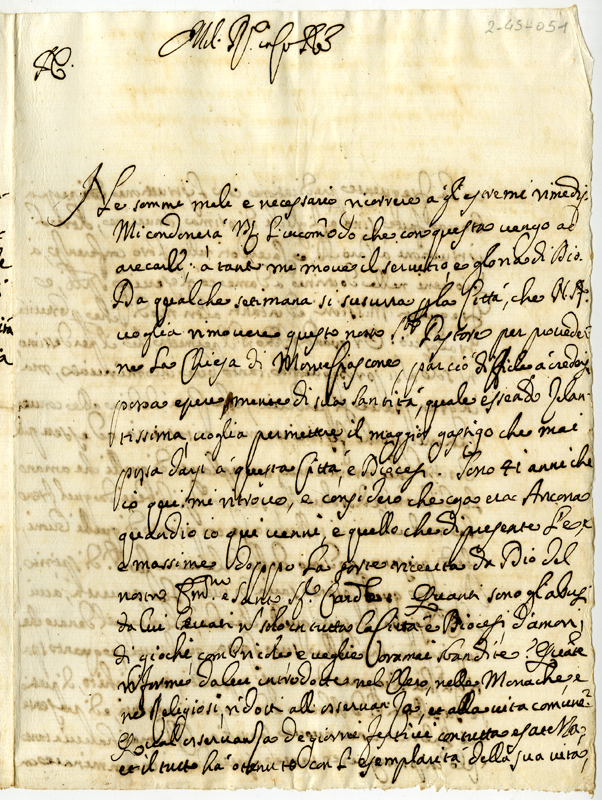 2-45-051
Ne sommi mali è necessario ricorrere a gl'estremi rimedij
Mi condonerà V.S. l'incomodo che con questa vengo ad
arecarli; à tanto mi move il servitio, e gloria di Dio.
Da qualche setimana si susurra p la Città, che N.S.
voglia rimovere questo nostro Pastore per provede
re La Chiesa di Montefiascone, par ciò dificile à creders
possa esere mente di sua Santità, quale essendo Zelan
tissima, voglia permettere il maggior gastigo che mai
possa darsi à questa Città e Diocesi. Sono 41 anni che
io qui mi ritrovo, e considero che cosa era Ancona
quando io qui venni, e quello che di presente l'è
e massime doppo La sorte ricevuta da Dio del
nostro Em.mo e Santo Card.le: Quanti sono gl'abusi
da lui levati n solo in tutta la Città e Diocesi d'amori,
di giochi, combriche e veglie oramai bandite? Quante
riforme da lui introdotte nel Clero, nelle Monache, e
ne Religiosi ridoti all'osservanza, et alla vita comune?
Qual osservanza de giorni festivi con tutta esatezza,
et il tutto hà ottenuto con l'esemplarità della sua vita,